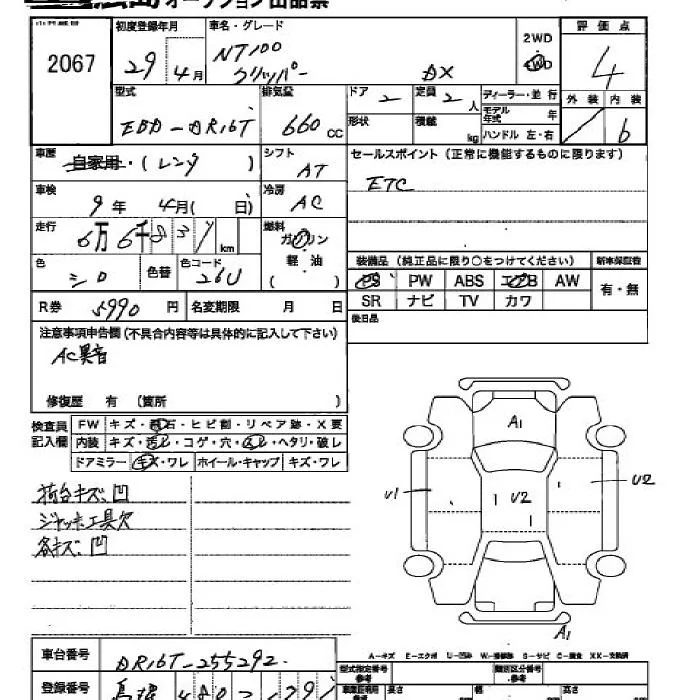 オークション出品票
2067
初度登録年月
29年 4月
車名・グレード
NT100
クリッパー DX
2WD
4WD
評価点
4
外装 内装
6
型式
EBD-DR16T
排気量
660 cc
ドア 2
定員 2人
ディーラー・並行
モデル年式 年
形状
積載 kg
ハンドル 左・右
車歴
自家用・(レンタ)
シフト
AT
セールスポイント (正常に機能するものに限ります)
ETC
車検
9年 4月( 日)
冷房
AC
走行
6万6千837km
燃料
ガソリン
軽油
( )
色
シロ
色替
色コード
26U
装備品 (純正品に限り○をつけてください)
新車保証書
PS PW ABS エアB AW
有・無
SR ナビ TV カワ
R券 5990 円
名変期限 月 日
後日品
注意事項申告欄 (不具合内容等は具体的に記入して下さい)
AC異音
修復歴 有 (箇所 )
検査員記入欄
FW キズ・飛石・ヒビ割・リペア跡・X要
内装 キズ・汚レ・コゲ・穴・スレ・ヘタリ・破レ
ドアミラー キズ・ワレ ホイール・キャップ キズ・ワレ
荷台キズ凹
ジャッキ工具欠
各キズ凹
A1
U1
U2
U2
A1
A-キズ E-エクボ U-凹み W-補修跡 S-サビ C-腐食 XX-交換済
車台番号
DR16T-255292
登録番号
480
型式指定番号
参考
類別区分番号
参考
長さ
幅
高さ